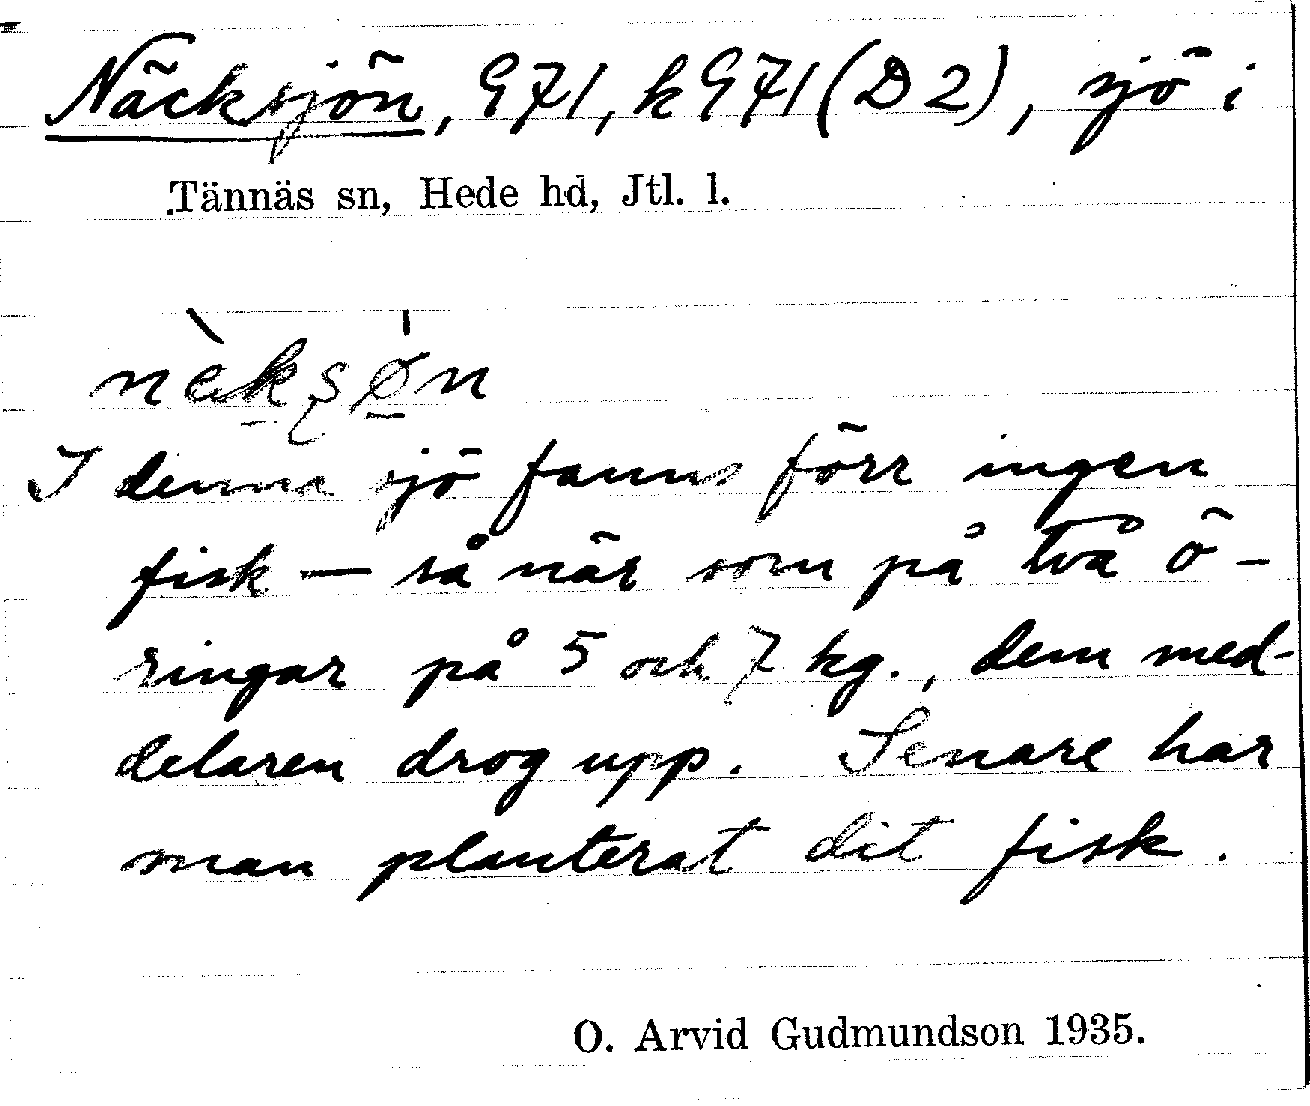 Näcksjön, G71, k G71 (D2), sjö i
Tännäs sn, Hede hd, Jtl. l.
I denna sjö fanns förr ingen
fisk — så när som på två ö-
ringar på 5 och 7 kg., dem med-
delaren drog upp. Senare har
man planterat dit fisk.
O. Arvid Gudmundson 1935.